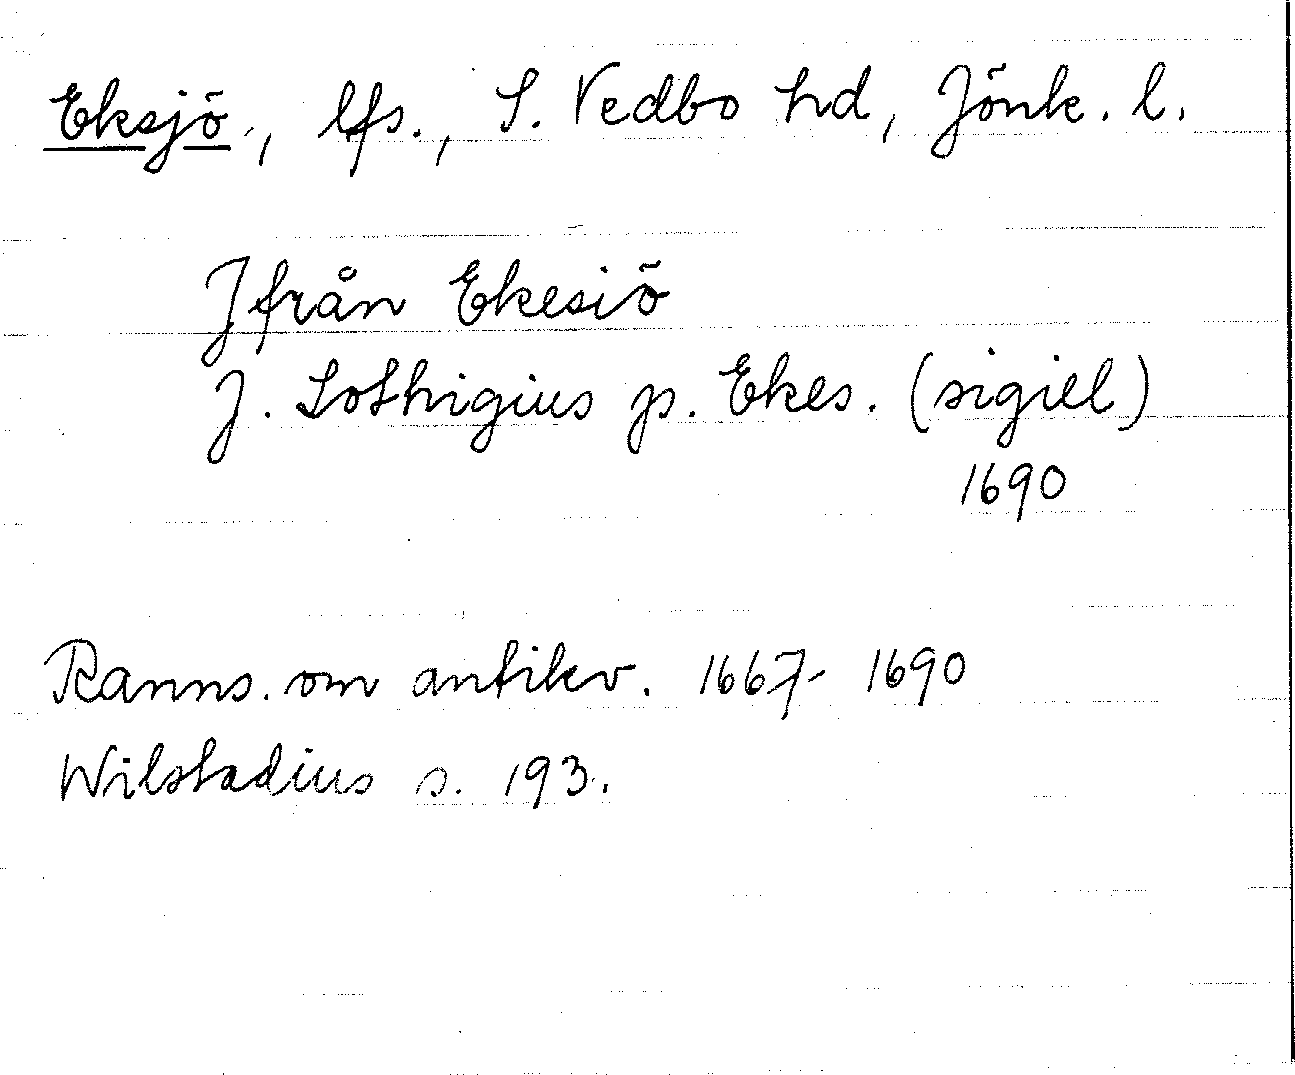 Eksjö, lfs., S. Vedbo hd, Jönk. l.
Jfrån Ekesiö
J. Lothigius p. Ekes. (sigill)
1690
Ranns. om antikv. 1667-1690
Wilstadius s. 193.